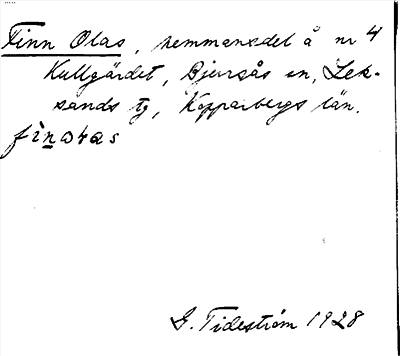 Finn Olas, hemmansdel å nr 4
Kullgärdet, Bjursås sn, Lek-
sands tg, Kopparbergs län.
G. Tideström 1928